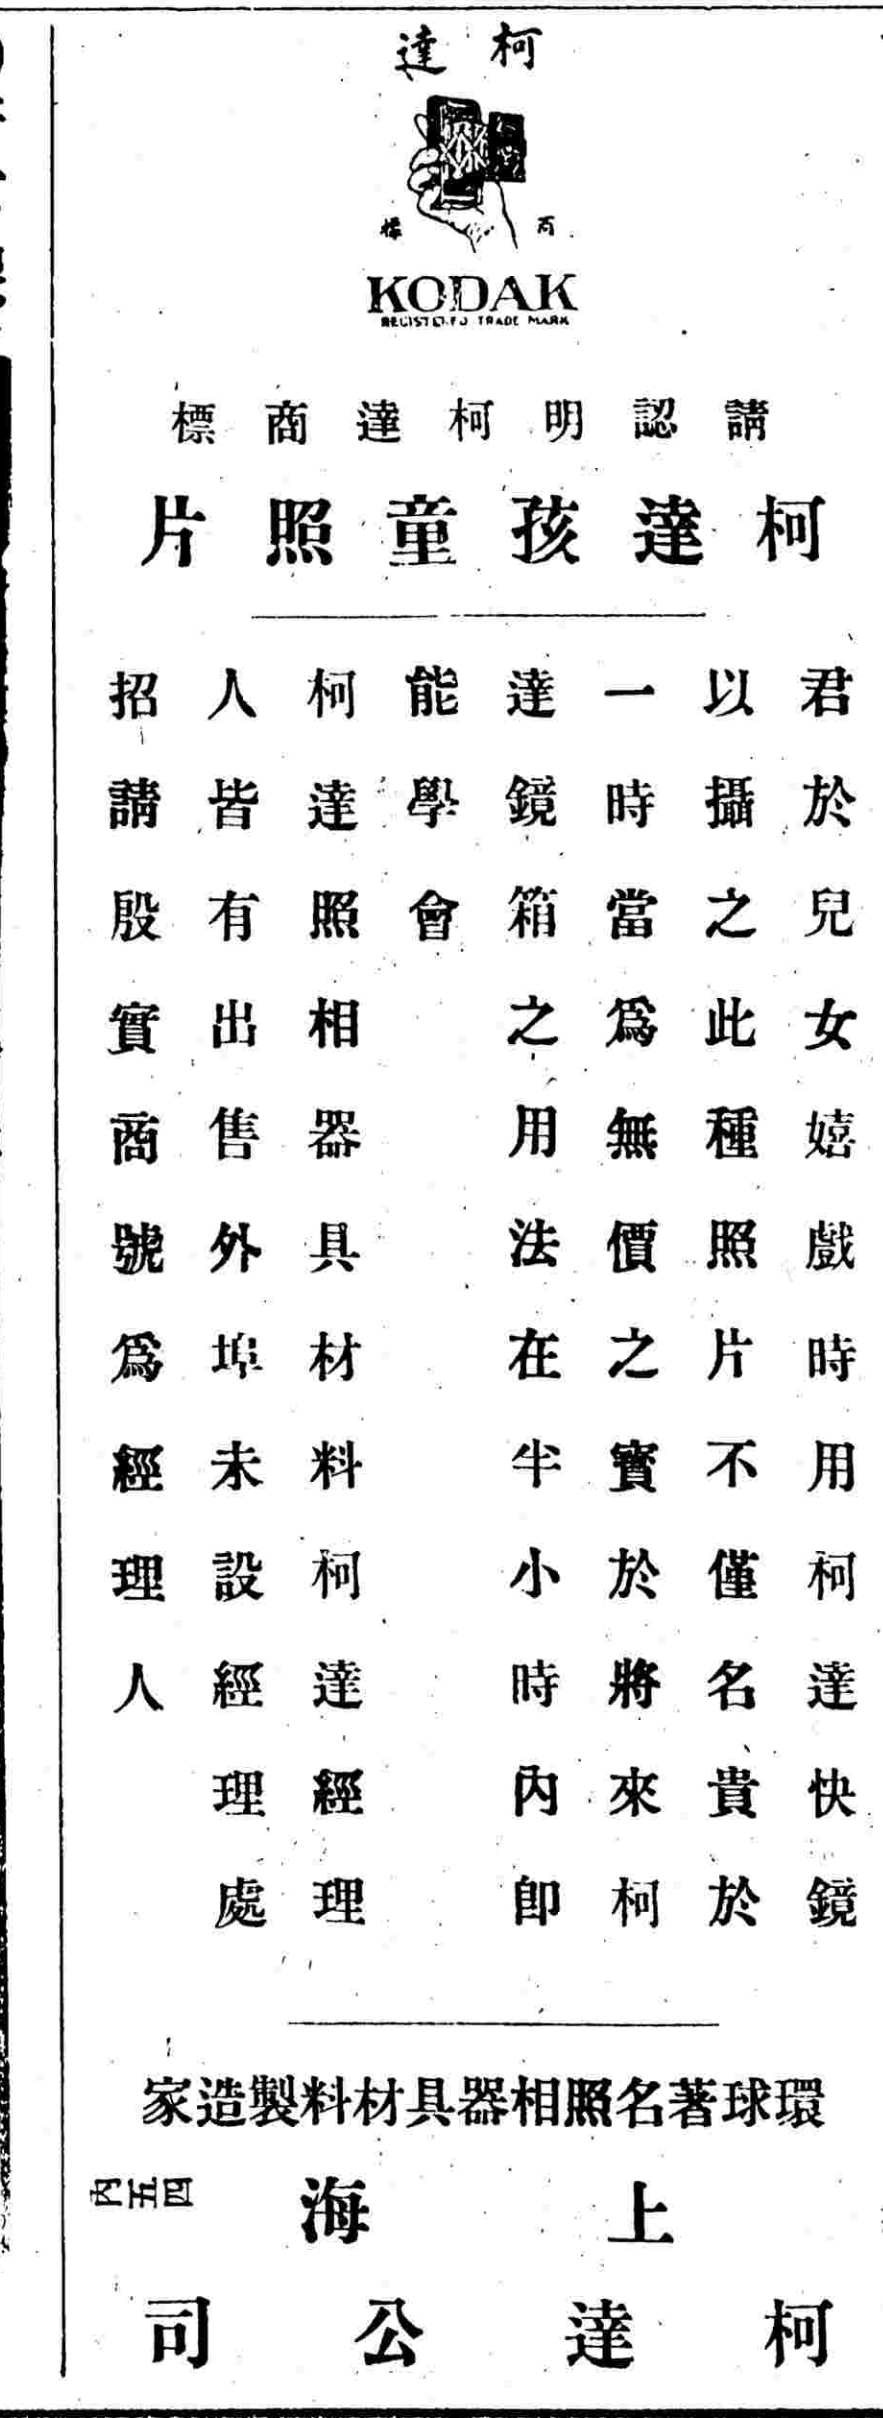 柯達
商標
KODAK
REGISTERED TRADE MARK
請認明柯達商標
柯達孩童照片
君於兒女嬉戲時用柯達快鏡
以攝之此種照片不僅名貴於
一時當爲無價之寶於將來柯
達鏡箱之用法在半小時內卽
能學會
柯達照相器具材料柯達經理
人皆有出售外埠未設經理處
招請殷實商號爲經理人
環球著名照相器具材料製造家
上海
四五內
柯達公司